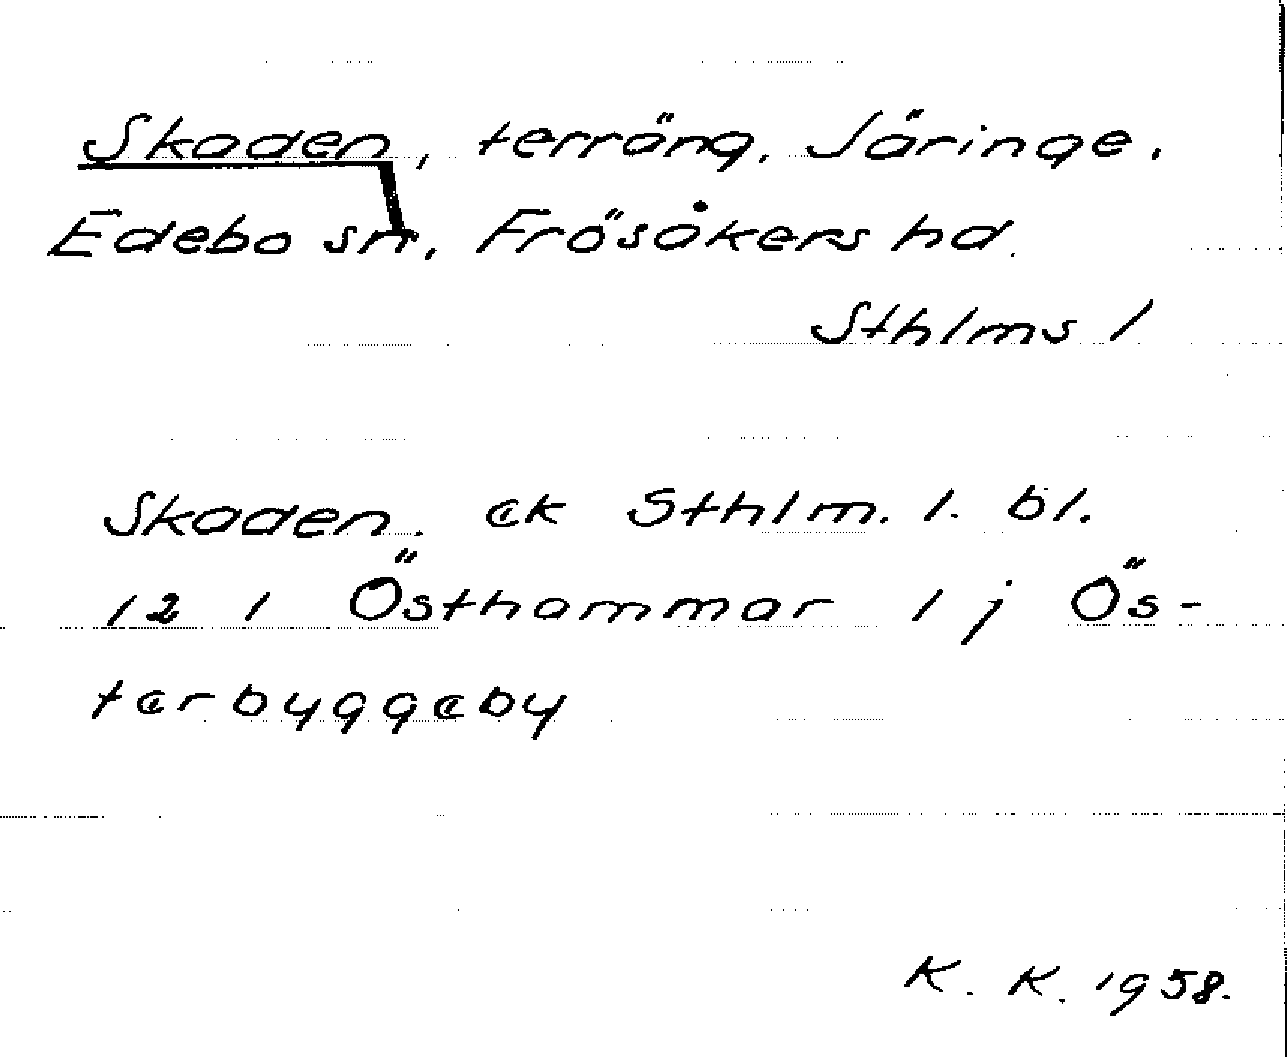 Skaden, terräng, Säringe,
Edebo sn, Frösåkers hd.
Sthlms l
Skaden. ek Sthlm. l. bl.
12 l Östhammar l j Ös-
terbyggeby
K. K. 1958.